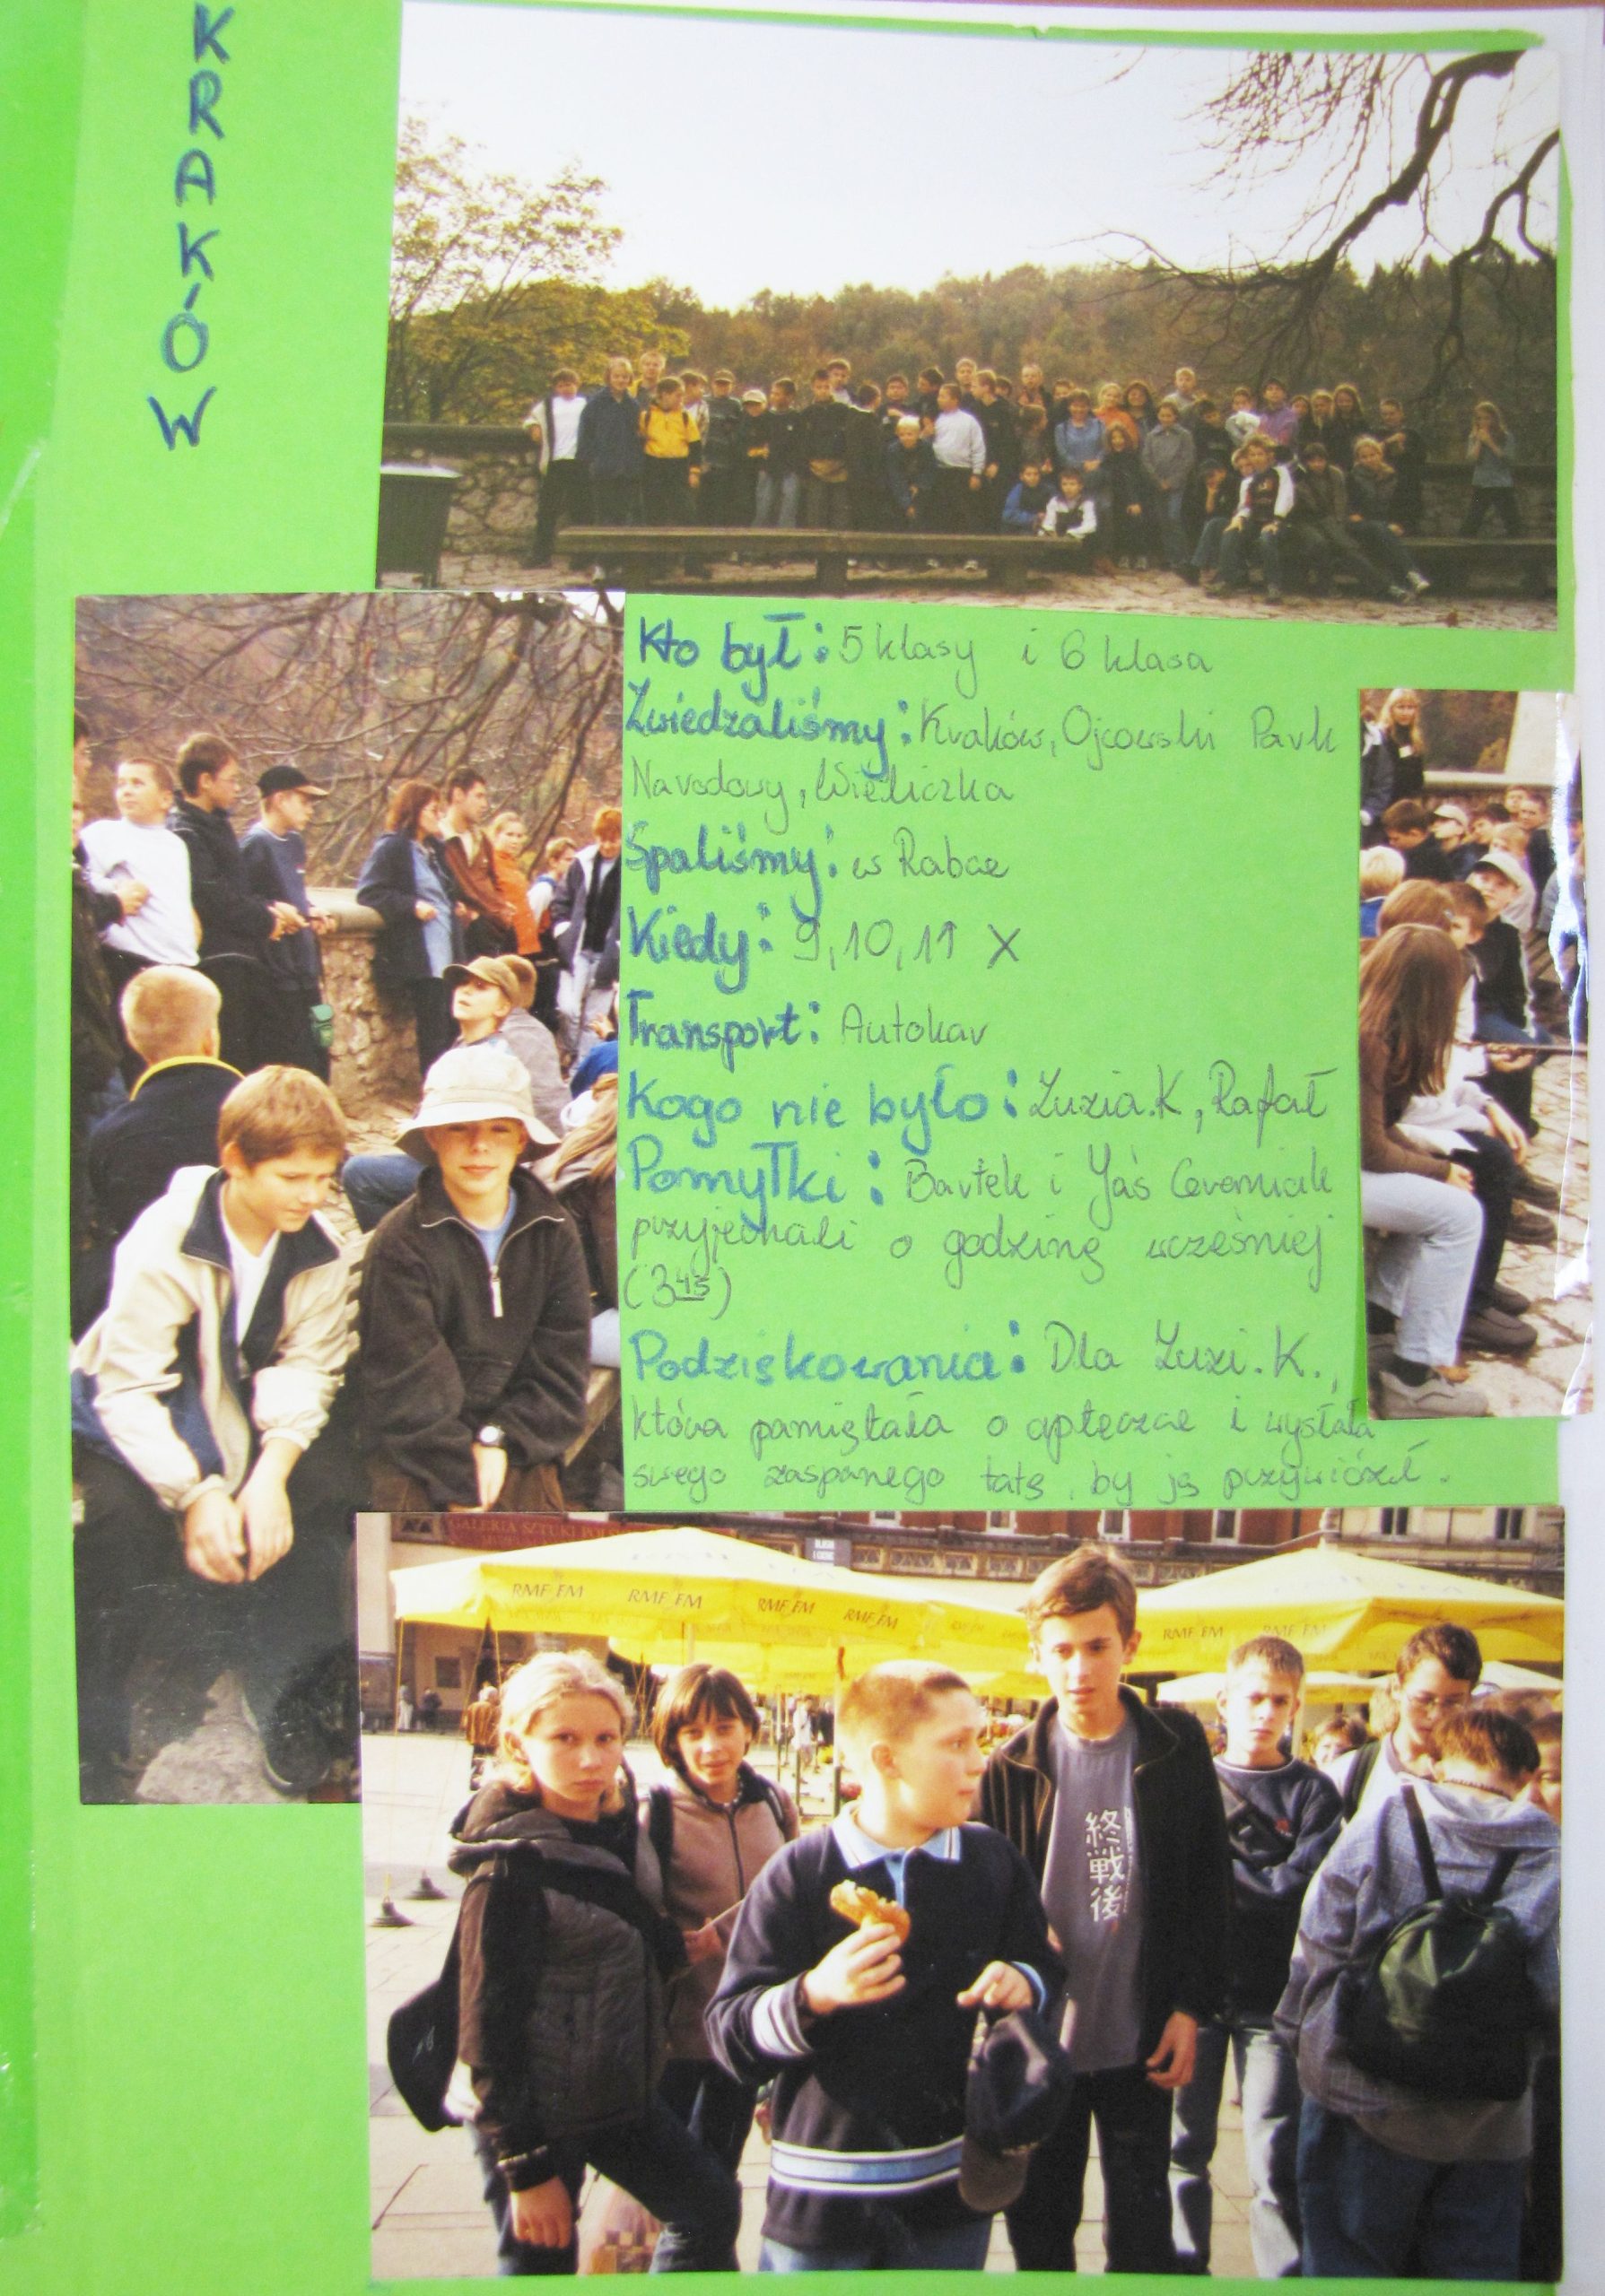 KRAKÓW
Kto był: 5 klasy i 6 klasa
Zwiedzaliśmy: Kraków, Ojcowski Park
Narodowy, Wieliczka
Spaliśmy: w Rabce
Kiedy: 9, 10, 11 X
Transport: Autokar
Kogo nie było: Zuzia.K, Rafał
Pomyłki: Bartek i Jaś Ceromiak
przyjechali o godzinę wcześniej
(3 45)
Podziękowania: Dla Zuzi. K.,
która pamiętała o apteczce i wysłała
swego zaspanego tatę, by ją przywiózł.
GALERIA SZTUKI
RMF FM RMF FM RMF FM RMF FM RMF FM RMF FM
終戦後